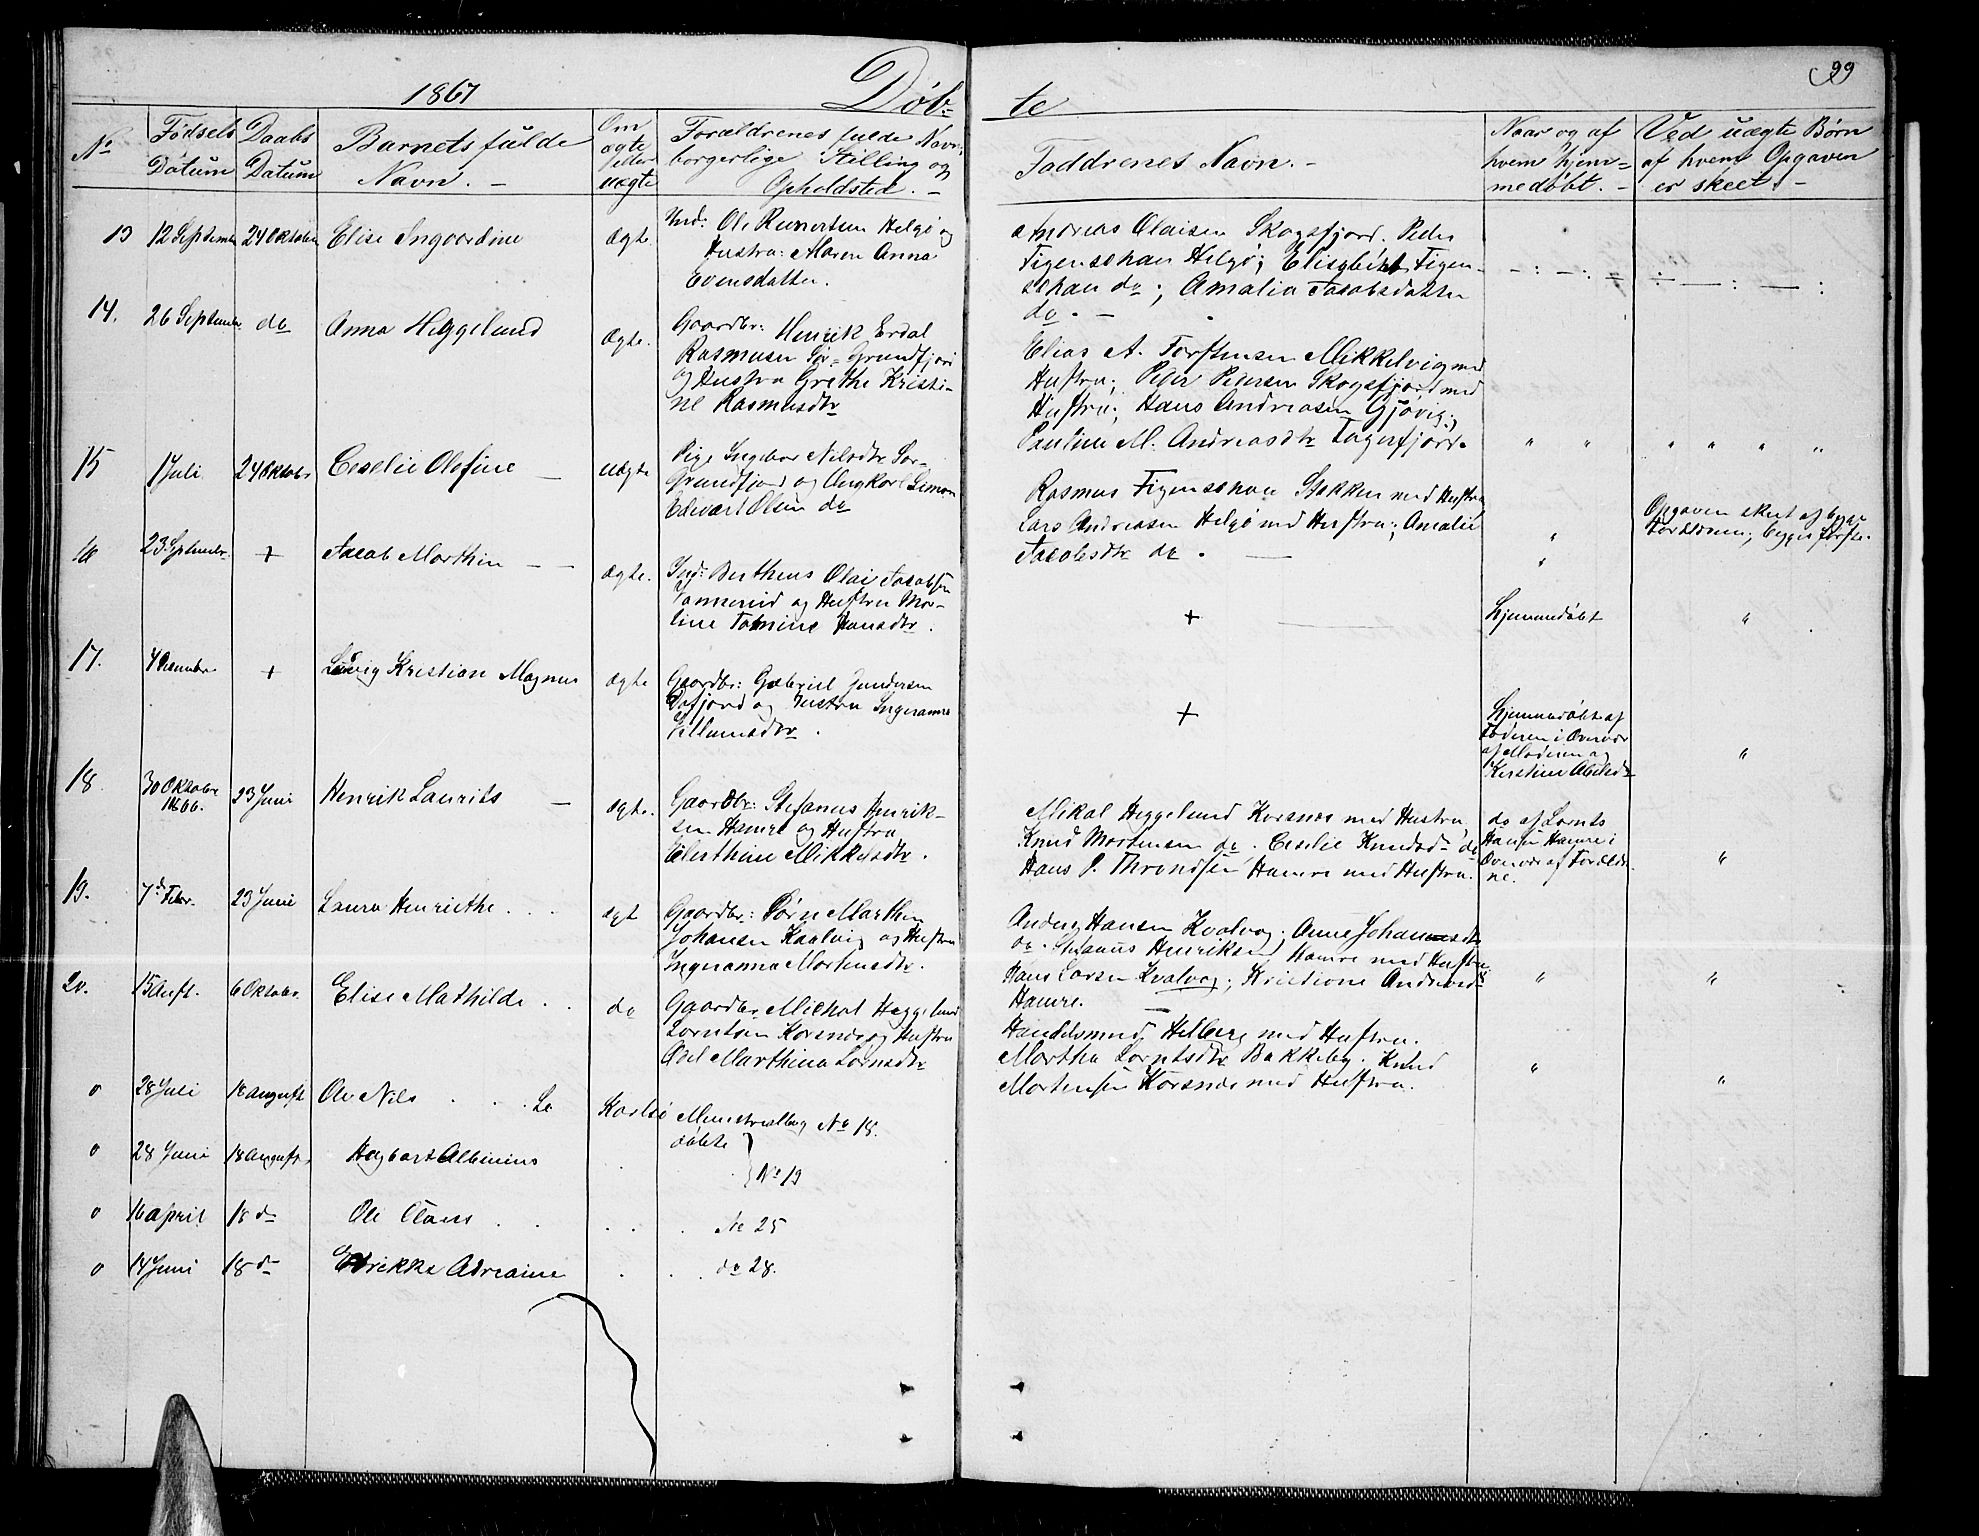 99
1867
Døb-
te
No
Fødsels
Datum
Daabs
Datum
Barnets fulde
Navn. -
Om
ægte
eller
uægte
Forældrenes fulde Navn,
borgerlige Stilling og
Opholdsted. -
Faddrenes Navn. -
Naar og af
hvem hjem-
medøbt. -
Ved uægte Børn
af hvem Opgaven
er skeet -
13 12 September 24 Oktober Elise Ingaardine ægte
Ole Reinertsen Helgø og
Hustru: Maren Anna
Evensdatter.
Andreas Olaisen Skogsfjord. Peder
Figenschau Helgø; Elisabeth Figen-
schau do; Amalia Jacobsdatter
do. -
14. 26 September do Anna Heggelund ægte.
Gaardbr: Henrik Erdal
Rasmusen Sør-Grundfjord
og Hustru Grethe Kristi-
ne Rasmusdtr
Elias A. Torstensen Mikkelvig med
Hustru; Peder Pedersen Skogsfjord med
Hustru; Hans Andreasen Gjøvig;
Pauline M. Andreasdtr Tagerfjord.
15 1 Juli 24 Oktobr Ceselie Olefine — uægte
Pige Ingebor Nilsdtr Sør-
Grundfjord og Ungkarl Simon
Edevart Olsen do
Rasmus Figenschau Stakken med Hustru
Lars Andreasen Helgø med Hustru; Amalie
Jacobsdtr do. —
Opgaven skeet af begge
Forældrene; begges første.
16 23 Septembr. + Jacob Marthin — — ægte.
Ind: Bertheus Olai Jacobsen
Vanneried og Hustru Mar-
line Tomine Hansdtr.
+
Hjemmedøbt
17. 4 Decembr + Ludvig Kristian Magnus ægte
Gaardbr: Gabriel Gundersen
Dafjord og Hustru Ingeranna
Villumsdtr.
+
Hjemmedøbt af
Faderen i Overvær
af Moderen og
Kerstine Abelsdtr
18. 30 Oktober
1866. 23 Juni Henrik Laurits — ægte.
Gaardbr: Stefanus Henrik-
sen Hamre og Hustru
Elerthine Mikkelsdtr.
Mikal Heggelund Korsnes med Hustru
Knud Mortensen do. Ceselie Knudsdtr do
Hans P. Throndsen Hamre med Hustru.
do af Lornts
Hansen Hamre i
Overvær af Forældre-
ne.
19. 7de Febr. 23 Juni Laura Henriethe . . . ægt
Gaardbr: Jørn Marthin
Johansen Kvalvig og Hustru
Ingeranna Mortensdtr.
Anders Hansen Kvalvag; Anne Johannesdtr
do. Stefanus Henriksen Hamre med Hustru
Hans Larsen Kvalvag; Kristiane Andreasdtr
Hamre. —
20. 15 Aust. 6 Oktobr. Elise Mathilde . . do
Gaardbr Michal Heggelund
Lorntsen Korsnes og Hustru
Abel Marthina Larsdtr
Handelsmand Helberg med Hustru.
Martha Lorntsdtr Bakkeby. Knud
Mortensen Korsnes med Hustru.
o 28 Juli 18 August Ole Nils . . . Se Karlsø Ministerialbog No 18.
døbte
o 28 Juni 18 August Hagbart Albinius . No 19
o 16 April 18 do Ole Claus . . . . . No 25
o 14 Juni 18 do Edrikke Adriane . . . do 28.